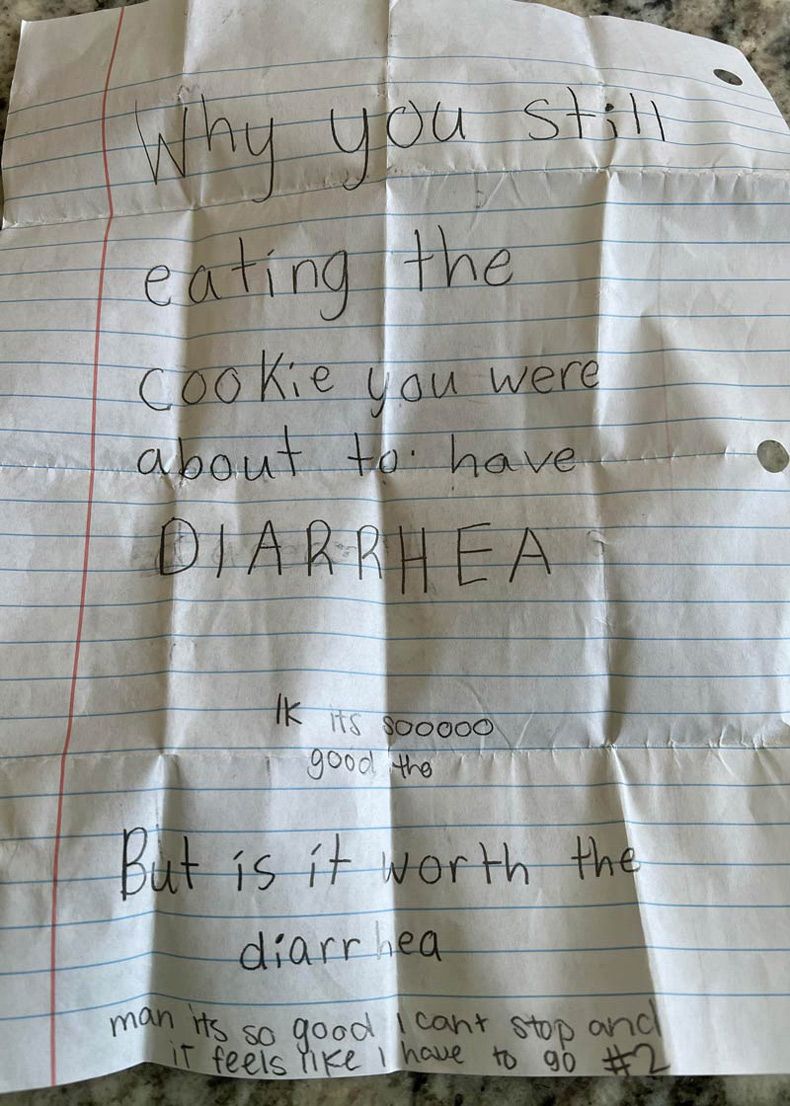 Why you still
eating the
cookie you were
about to have
DIARRHEA
Ik its sooooo
good tho
But is it worth the
diarrhea
man its so good I cant stop and
it feels like I have to go #2